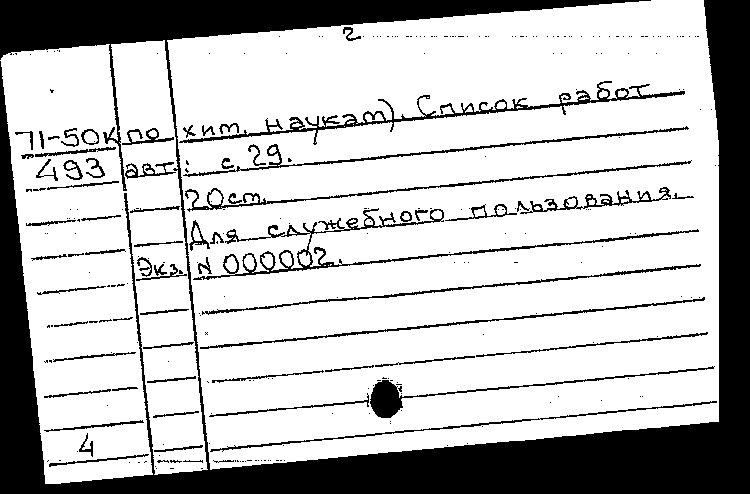 2
71-50К по хим. наукам). Список работ
493 авт.: с. 29.
20 см.
Для служебного пользования.
Экз. N 000002.
4